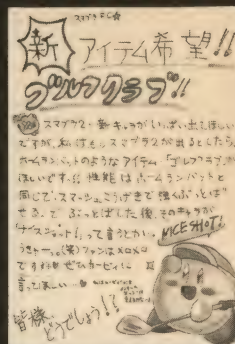 スマブラ拳!!
新 アイテム希望!!
ゴルフクラブ!!
スマブラ2・新キャラがいっぱい出てほしい
ですが、私はもしスマブラ2が出るとしたら、
ホームランバットのようなアイテム「ゴルフクラブ」が
ほしいです。!! 性能はホームランバットと
同じで、スマッシュこうげきで強くぶっとば
せる。で、ぶっとばした後、そのキャラが
「ナイスショット!」って言うとかい。
うきゃーっ。(笑)ファンはメロメロ
ですよ!!ぜひカービィに
言ってほしい…
NICE SHOT!
皆様、
どうでしょう!!